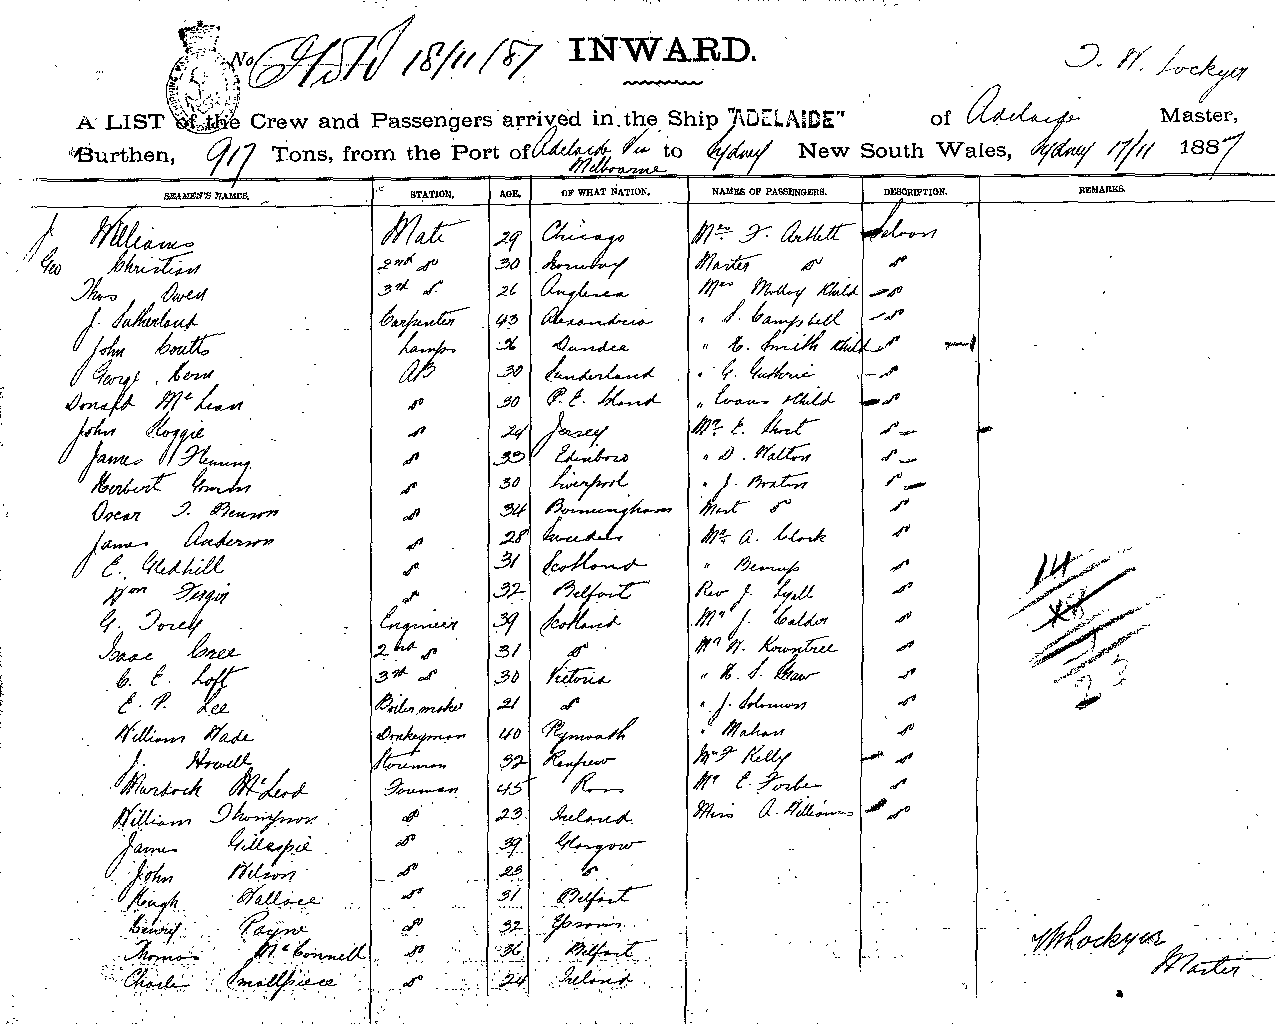 No 18/11/87 INWARD. T. W. Lockyer
A LIST of the Crew and Passengers arrived in the Ship "ADELAIDE" of Adelaide Master,
Burthen, 917 Tons, from the Port of Adelaide Via Melbourne to Sydney New South Wales, Sydney 17/11 1887
SEAMEN'S NAMES. STATION. AGE. OF WHAT NATION. NAMES OF PASSENGERS. DESCRIPTION. REMARKS.
J. Williams Mate 29 Chicago Mrs F. Artlett Saloon
Geo Christian 2nd do 30 Norway Master do do
Thos Owen 3rd do 26 Anglesea Mrs Molloy & Child do
J. Sutherland Carpenter 43 Alexandria " S. Campbell do
John Coutts Lamps 36 Dundee " E. Smith & Child do
George Kern AB 30 Sunderland " G. Guthrie do
Donald McLean do 30 P. E. Island " Evans & Child do
John Hoggie do 24 Jersey Mr E. Short do
James Fleming do 33 Edinboro " D. Walton do
Herbert do 30 Liverpool " J. do
Oscar T. Benson do 34 Birmingham Mast do do
James Anderson do 28 Sweden Mr A. Clark do
E. Gledhill do 31 Scotland " do
Wm do 32 Belfast Rev J. Lyall do
G. Torey Engineer 39 Scotland Mr J. Calder do
Isaac Cree 2nd do 31 do Mr W. Rowntree do
C. E. Loft 3rd do 30 Victoria " H. S. Shaw do
E. P. Lee Boiler maker 21 do " J. Solomon do
William Wade Donkeyman 40 Plymouth " Mahon do
J. Howell Storeman 32 Renfrew Mr F Kelly do
Murdock McLeod Fireman 45 Ross Mr E. Forbes do
William Thompson do 23 Ireland Miss A. Williams do
James Gillaspie do 39 Glasgow
John Wilson do 23 do
Hugh Wallace do 31 Belfast
Henry Payne do 32 Epsom
Thomas McConnell do 36 Belfast
Charles Smallpiece do 24 Ireland
14
23
TWLockyer
Master